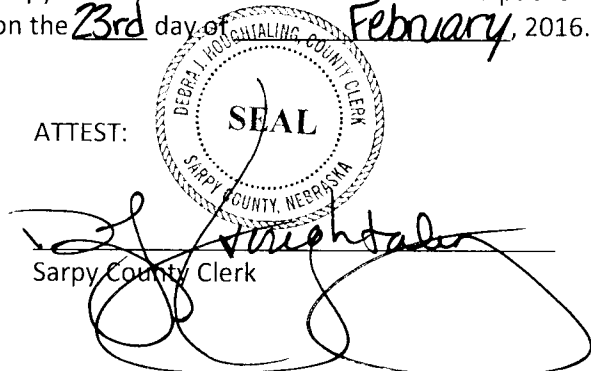 on the 23rd day of February, 2016.
DEBRA J. HOUGHTALING, COUNTY CLERK
SEAL
SARPY COUNTY, NEBRASKA
ATTEST:
D J Houghtaling
Sarpy County Clerk